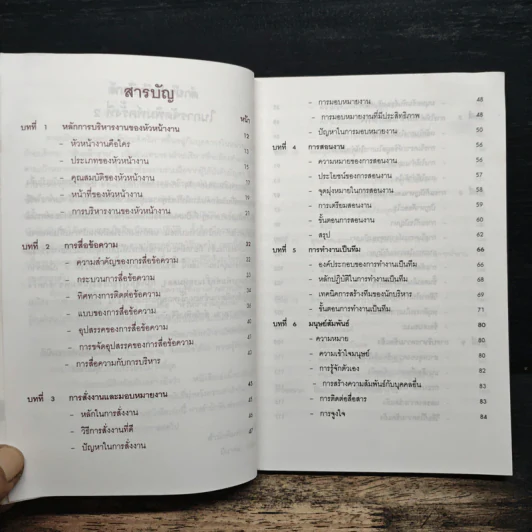 สารบัญ
หน้า
บทที่ 1 หลักการบริหารงานของหัวหน้างาน 12
- หัวหน้างานคือใคร
- ประเภทของหัวหน้างาน
- คุณสมบัติของหัวหน้างาน
- หน้าที่ของหัวหน้างาน
- การบริหารงานของหัวหน้างาน
บทที่ 2 การสื่อข้อความ
- ความสำคัญของการสื่อข้อความ
- กระบวนการสื่อข้อความ
- ทิศทางการติดต่อข้อความ
- แบบของการสื่อข้อความ
- อุปสรรคของการสื่อข้อความ
- การขจัดอุปสรรคของการสื่อข้อความ
- การสื่อความกับการบริหาร
บทที่ 3 การสั่งงานและมอบหมายงาน
- หลักในการสั่งงาน
- วิธีการสั่งงานที่ดี
- ปัญหาในการสั่งงาน
- การมอบหมายงาน 48
- การมอบหมายงานที่มีประสิทธิภาพ 48
- ปัญหาในการมอบหมายงาน 50
บทที่ 4 การสอนงาน 56
- ความหมายของการสอนงาน 56
- ประโยชน์ของการสอนงาน 57
- จุดมุ่งหมายในการสอนงาน 58
- การเตรียมสอนงาน 59
- ขั้นตอนการสอนงาน 60
- สรุป 62
บทที่ 5 การทำงานเป็นทีม 66
- องค์ประกอบของการทำงานเป็นทีม 66
- หลักปฏิบัติในการทำงานเป็นทีม 68
- เทคนิคการสร้างทีมของนักบริหาร 69
- ขั้นตอนการทำงานเป็นทีม 71
บทที่ 6 มนุษย์สัมพันธ์ 80
- ความหมาย 80
- ความเข้าใจมนุษย์ 80
- การรู้จักตัวเอง 82
- การสร้างความสัมพันธ์กับบุคคลอื่น 83
- การติดต่อสื่อสาร 83
- การจูงใจ 84